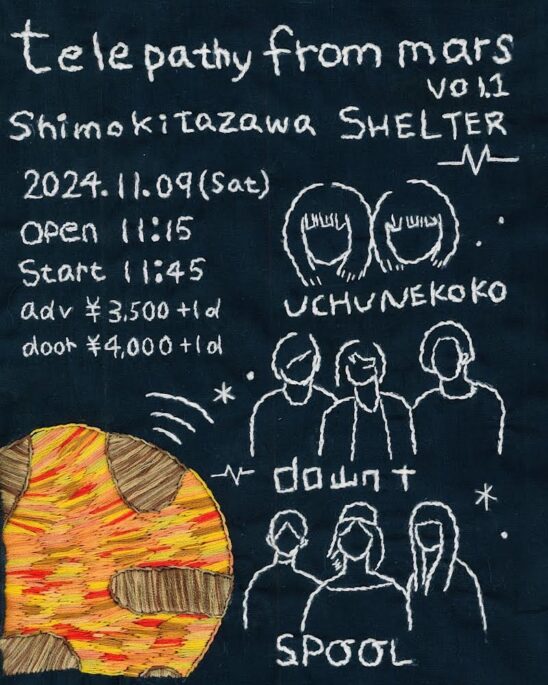 telepathy from mars
vol.1
Shimokitazawa SHELTER
2024.11.09(Sat)
open 11:15
Start 11:45
adv ¥3,500+1d
door ¥4,000+1d
UCHUNEKOKO
downt
SPOOL